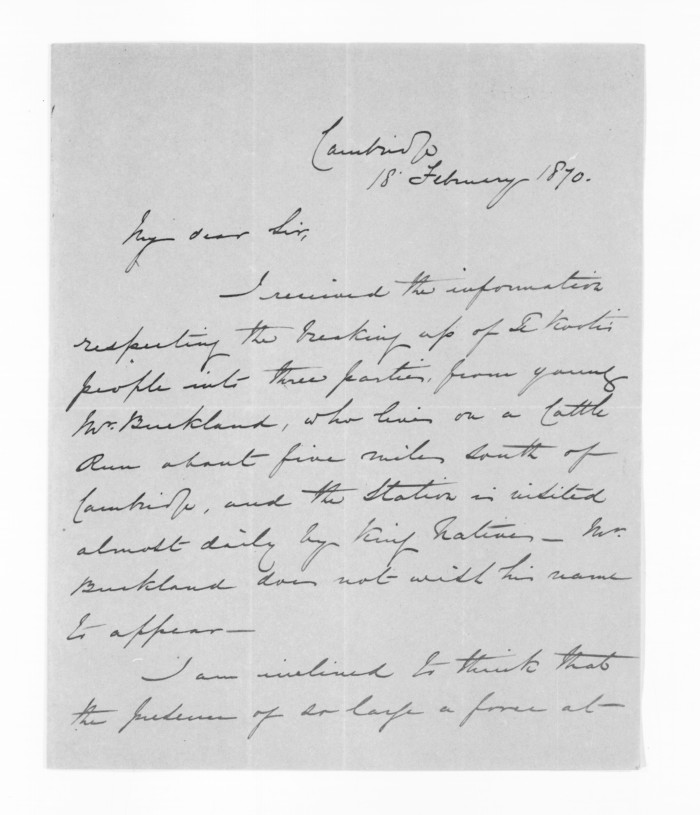 Cambridge
18 February 1870.
My dear Sir,
I received the information
respecting the breaking up of Te Kooti's
people into three parties, from young
Mr. Buckland, who lives on a Cattle
Run about five miles south of
Cambridge, and the Station is visited
almost daily by King Natives — Mr.
Buckland does not wish his name
to appear —
I am inclined to think that
the presence of so large a force at